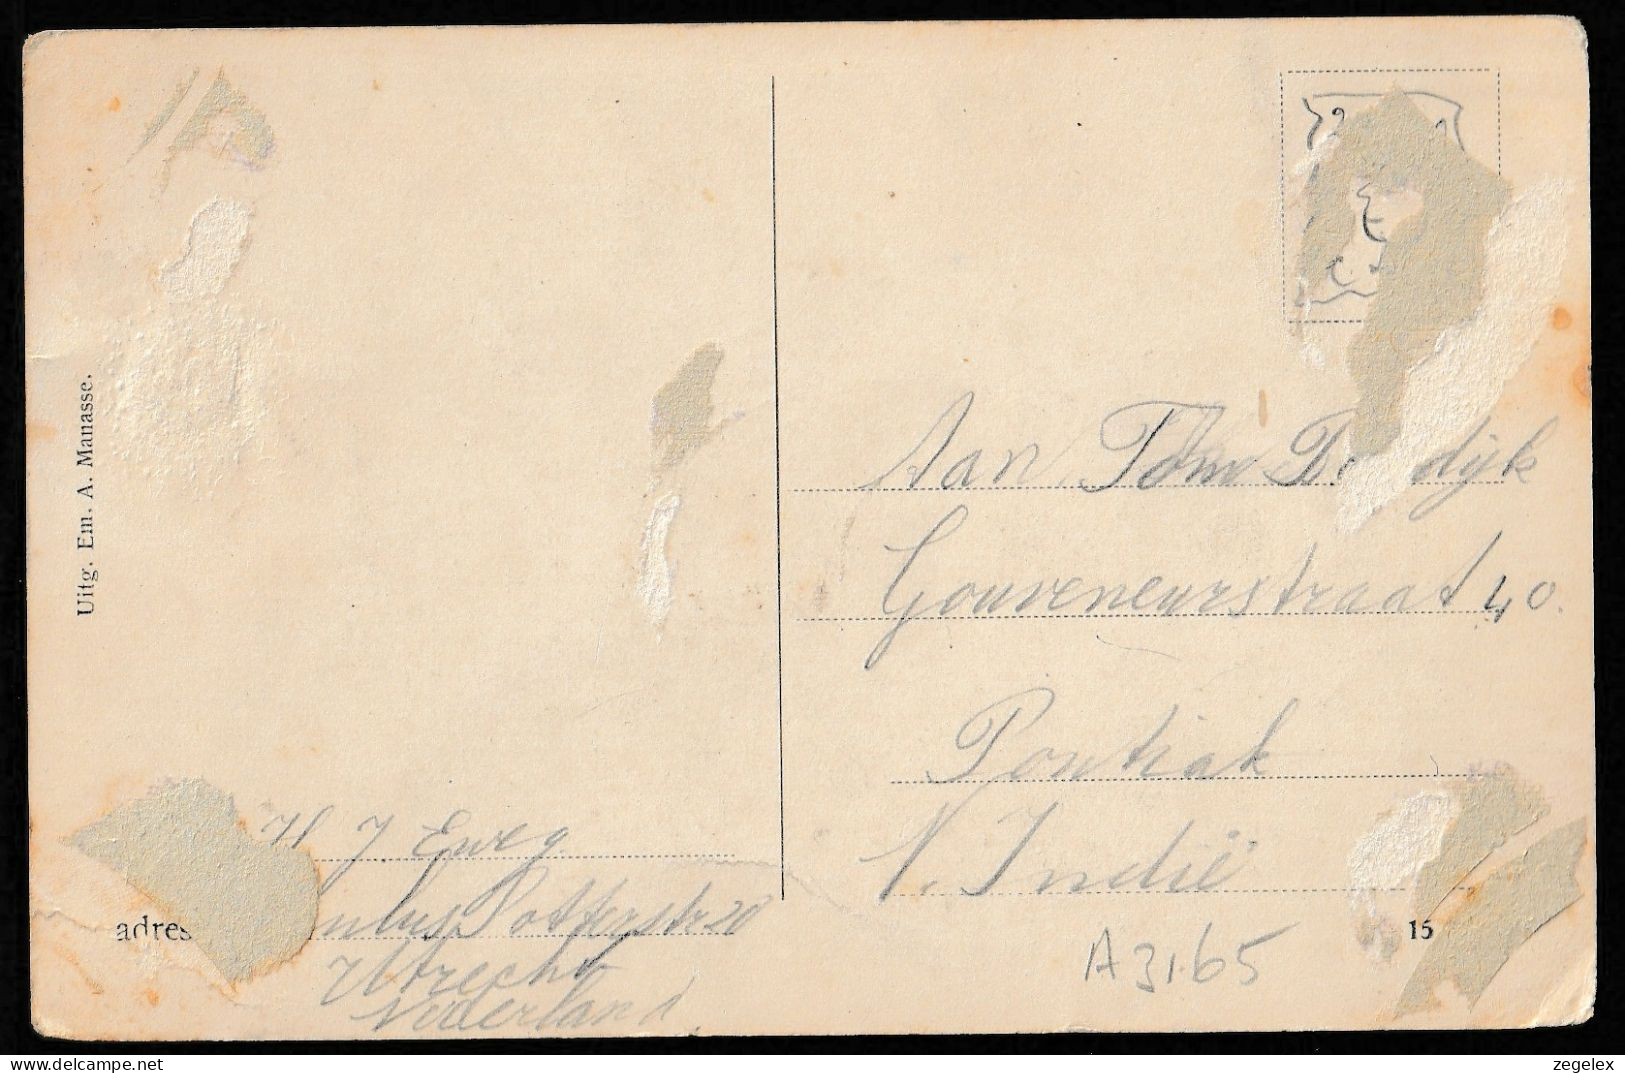 Uitg. Em. A. Manasse.
Aan Tom dijk
Gouveneurstraat 40.
Pontiak
N. Indië
H J. Eweg
adres
ulus Potterstr 20
Utrecht
Nederland
A3165
15
zegelex